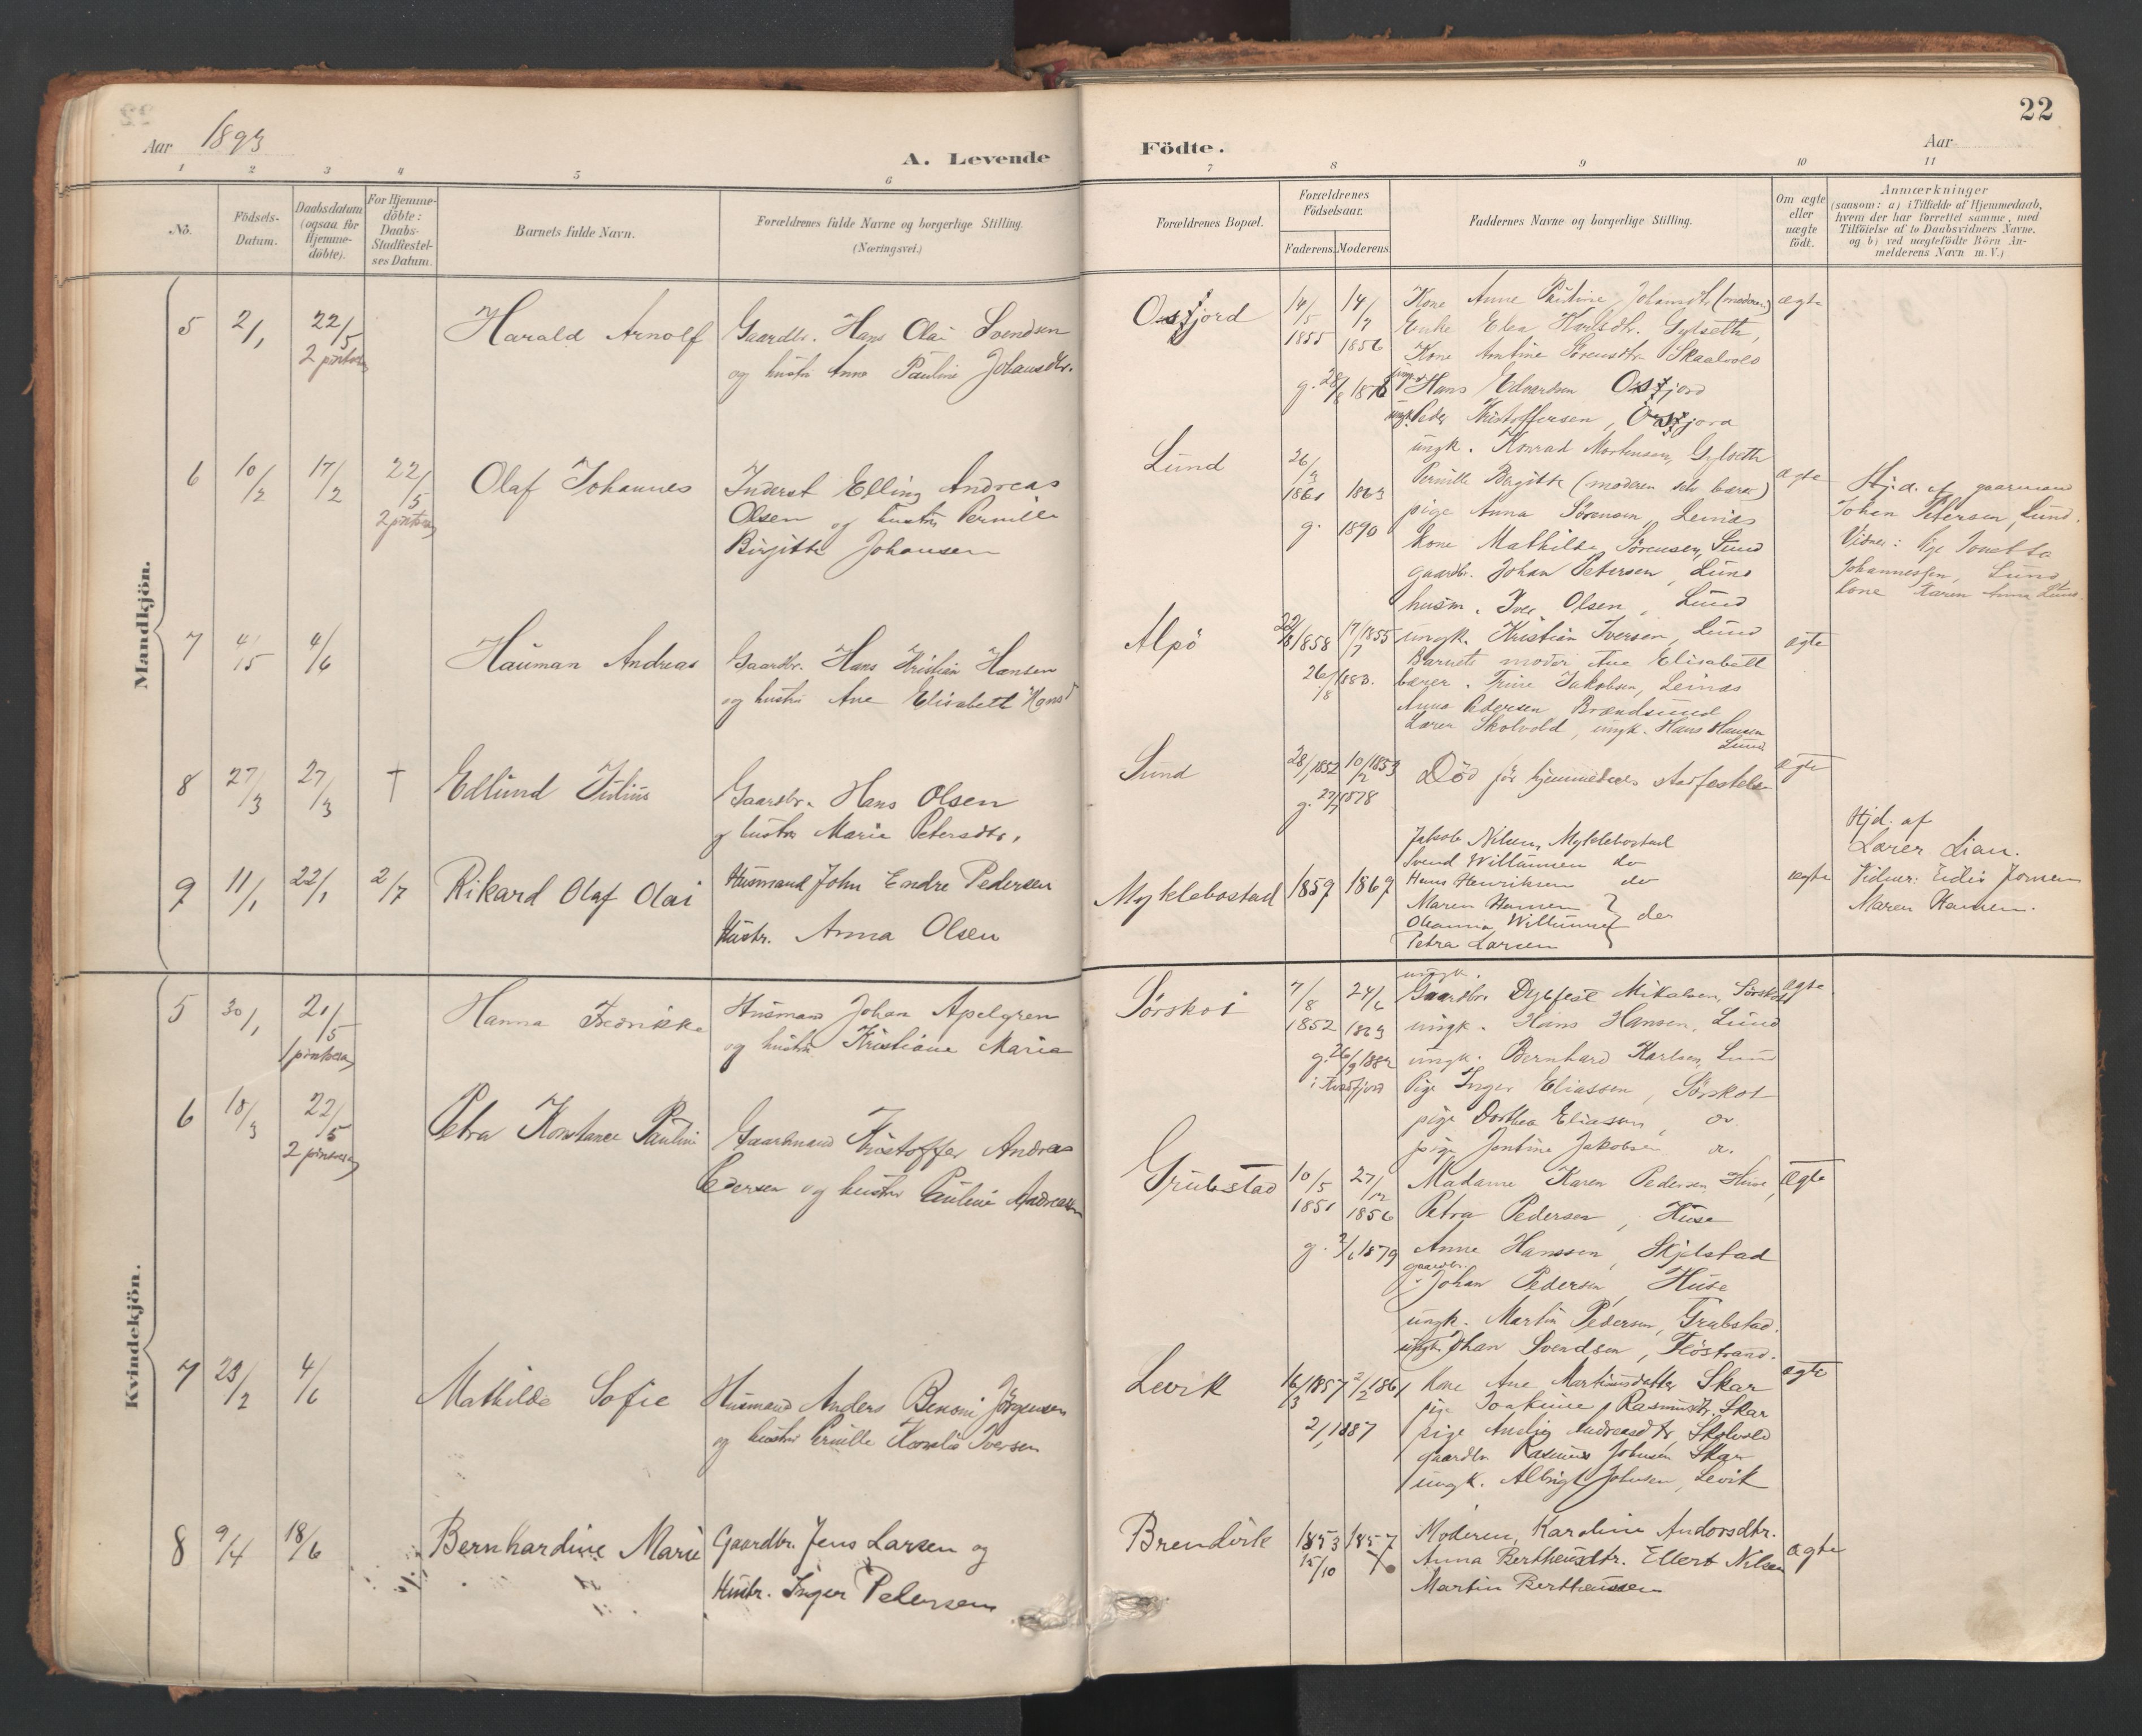 22
Aar 1893
A. Levende
Födte.
Aar
1 2 3 4 5 6 7 8 9 10 11
Nö.
Födsels-
Datum.
Daabsdatum
(ogsaa for
Hjemme-
döbte).
For Hjemme-
döbte:
Daabs-
Stadfæstel-
ses Datum.
Barnets fulde Navn.
Forældrenes fulde Navne og borgerlige Stilling.
(Næringsvei.)
Forældrenes Bopæl.
Forældrenes
Födselsaar.
Faderens. Moderens.
Faddernes Navne og borgerlige Stilling.
Om ægte
eller
uægte
födt.
Anmærkninger
(saasom: a) i Tilfælde af Hjemmedaab,
hvem der har forrettet samme, med
Tilföielse af to Daabsvidners Navne.
og b) ved uægtefödte Börn An-
melderens Navn m. V.)
Mandkjön.
5 2/1 22/5
2 pintsedag
Harald Arnolf
Gaardbr. Hans Olai Svendsen
og hustru Anne Pauline Johansdtr.
Osfjord
14/5 1855
14/7 1856
g. 28/8 1878
Kone Anne Pauline Johansdtr (moderen)
Enke Elen Karlsdtr. Gylseth,
Kone Antine Sörensdtr Skaalvold
ungk. Hans Edvardsen Osfjord
ungk. Peder Kristoffersen, Osfjord
ungk. Konrad Mortensen, Gylseth
ægte
6 10/2 17/2 22/5
2 pintsedag
Olaf Johannes
Inderst Elling Andreas
Olsen og hustru Pernille
Birgitte Johansen
Lund
26/3 1861 1863
g. 1890
Pernille Birgitte (moderen selv bærer)
pige Anna Sörensen, Leinæs
Kone Mathilde Sörensen, Lund
gaardbr. Johan Petersen, Lund
husm. Iver Olsen, Lund
ungk. Kristian Iversen, Lund
ægte
Hj.d. af gaarmand
Johan Petersen, Lund.
Vidner: Pige Jonetta
Johannessen, Lund
Kone Karen Anna Lund.
7 4/5 4/6
Hauman Andreas
Gaardbr. Hans Kristian Hansen
og hustru Ane Elisabeth Hansd
Alpö
1858
17/7 1855
26/8 188
Barnets moder Ane Elisabeth
bærer. Trine Jakobsen, Leinæs
Anna Pedersen Brændsund
Lærer Skolvold, ungk. Hans Hansen
Lund
ægte
8 27/3 27/3 †
Edlund Julius
Gaardbr. Hans Olsen
og hustru Marie Petersdtr.
Lund
28/1 1852 10/2 1853
g. 27/7 1878
Död för hjemmedaabs stadfestelse
ægte
9 11/1 22/1 2/7
Rikard Olaf Olai
Husmand John Endre Pedersen
Hustr. Anna Olsen
Myklebostad
1859 1867
Jakob Nilsen, Myklebostad
Svend Willumsen do
Hans Henriksen do
Maren Hansen
Oleanna Willumsen } der
Petra Larsen
ægte
Hjd. af
Lærer Lian.
Vidner:
Maren Hansen.
Kvindekjön.
5 30/1 21/5
1 pintsedag
Hanna Fredrikke
Husmand Johan Apelgren
og hustru Kristiane Maria
Sörskot
7/8 1852
24/6 1863
g. 26/9 1882
Gaardbr. Dyrfest Mikalsen, Sörskot
ungk. Hans Hansen, Lund
ungk. Bernhard Karlsen, Lund
Pige Inger Eliassen, Sörskot
pige Dorthea Eliassen, do.
pige Jentine Jakobsen do.
ægte
6 18/3 22/5
2 pintsedag
Petra Konstance Pauline
Gaardmand Kristoffer Andreas
Pedersen og hustru Pauline Andreassen
Grubstad
10/5 1851
27/12 1856
g. 2/6 1879
Madame Karen Pedersen, Huse,
Petra Pedersen, Huse
Anne Hanssen, Skjelstad
gaardbr.
Johan Pedersen, Huse
ungk. Martin Pedersen, Grubstad.
ungk. Johan Svendsen, Flöstrand.
ægte
7 23/2 4/6
Mathilde Sofie
Husmand Anders Benoni Jörgensen
og hustru Pernille Kornelia Iversen
Levik
16/3 1857 2/2 1861
2/1 1887
Kone Ane Martinusdatter Skar
pige Joakime Rasmusdtr. Skar
pige Andreasdtr, Skolvold
gaardbr. Rasmus Johnsen Skar
ungk. Albrigt Johnsen, Levik
ægte
8 9/4 18/6
Bernhardine Marie
Gaardbr. Jens Larsen og
Hustr. Inger Petersen
Brendvik
1853 1857
15/10
Moderen, Karoline Andorsdtr.
Anna Bertheusdtr. Ellert Nilsen
Martin Bertheussen
ægte